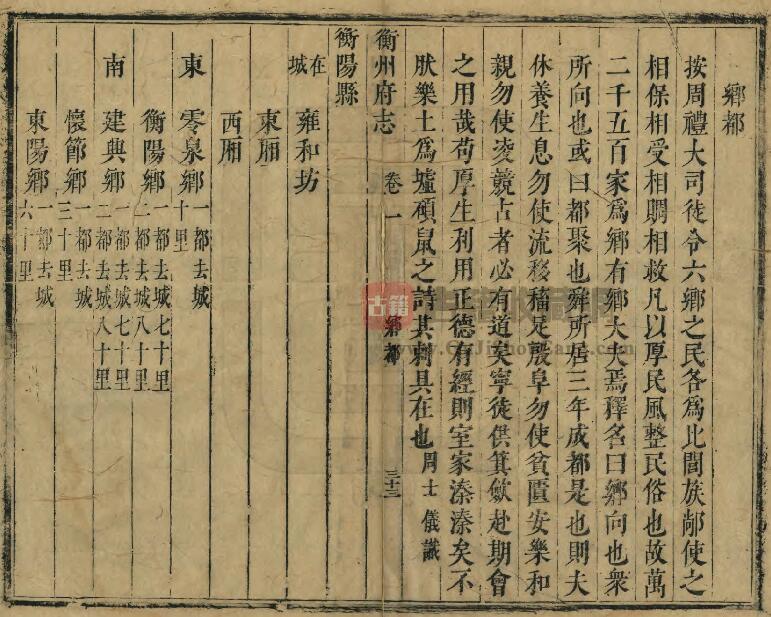 鄉都
按周禮大司徒令六鄉之民各爲比閭族鄰使之
相保相受相賙相救凡以厚民風整民俗也故萬
二千五百家爲鄉有鄉大夫焉釋名曰鄉向也衆
所向也或曰都聚也舜所居三年成都是也則夫
休養生息勿使流移穡足殷阜勿使貧匱安樂和
親勿使凌競古者必有道矣寧徒供箕斂赴期會
之用哉苟厚生利用正德有經則室家溱溱矣不
肰樂土爲墟碩鼠之詩其刺具在也周士儀識
衡州府志 卷一 鄉都 三十三
衡陽縣
在城 雍和坊
東厢
西厢
東 零泉鄉 一都去城十里
衡陽鄉 一都去城七十里 二都去城八十里
南 建興鄉 一都去城七十里 二都去城八十里
懷節鄉 一都去城三十里
東陽鄉 一都去城六十里
古籍